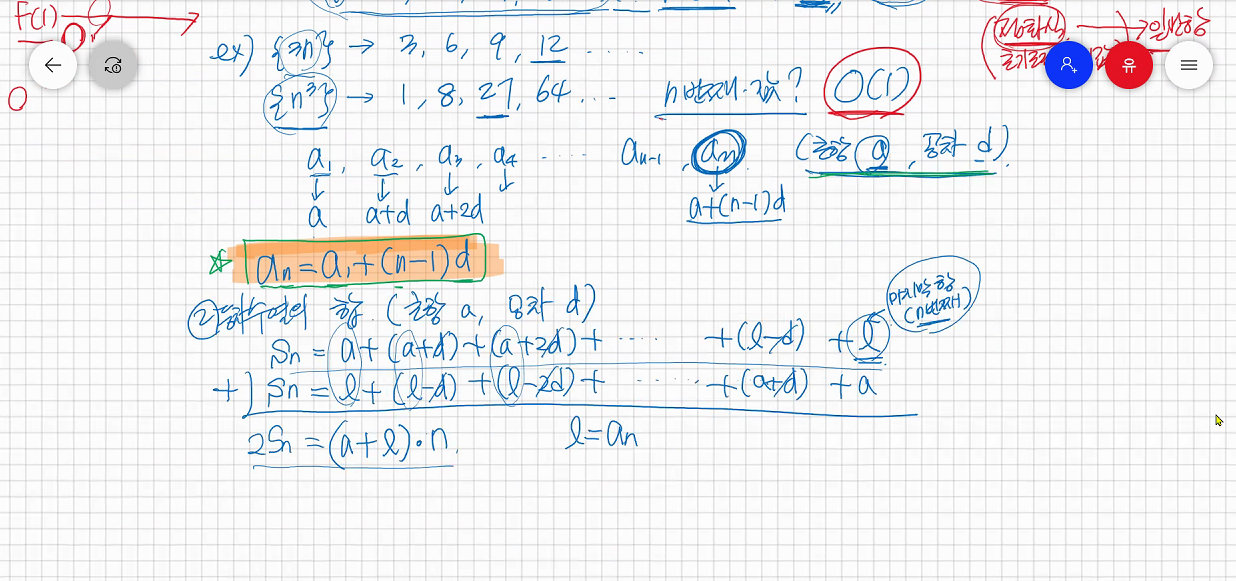 F(1)
점화식 → 일반항
ex) {3n} → 3, 6, 9, 12 ·····
{n³} → 1, 8, 27, 64 ... n번째 값? O(1)
a₁, a₂, a₃, a₄ ... aₙ₋₁, aₙ (초항 a, 공차 d).
a a+d a+2d a+(n-1)d
☆ aₙ = a₁ + (n-1)d
② 등차수열의 합. (초항 a, 공차 d)
마지막항
(n번째)
Sₙ = a + (a+d) + (a+2d) + ····· + (l-d) + l
+) Sₙ = l + (l-d) + (l-2d) + ······ + (a+d) + a
2Sₙ = (a+l)·n. l = aₙ